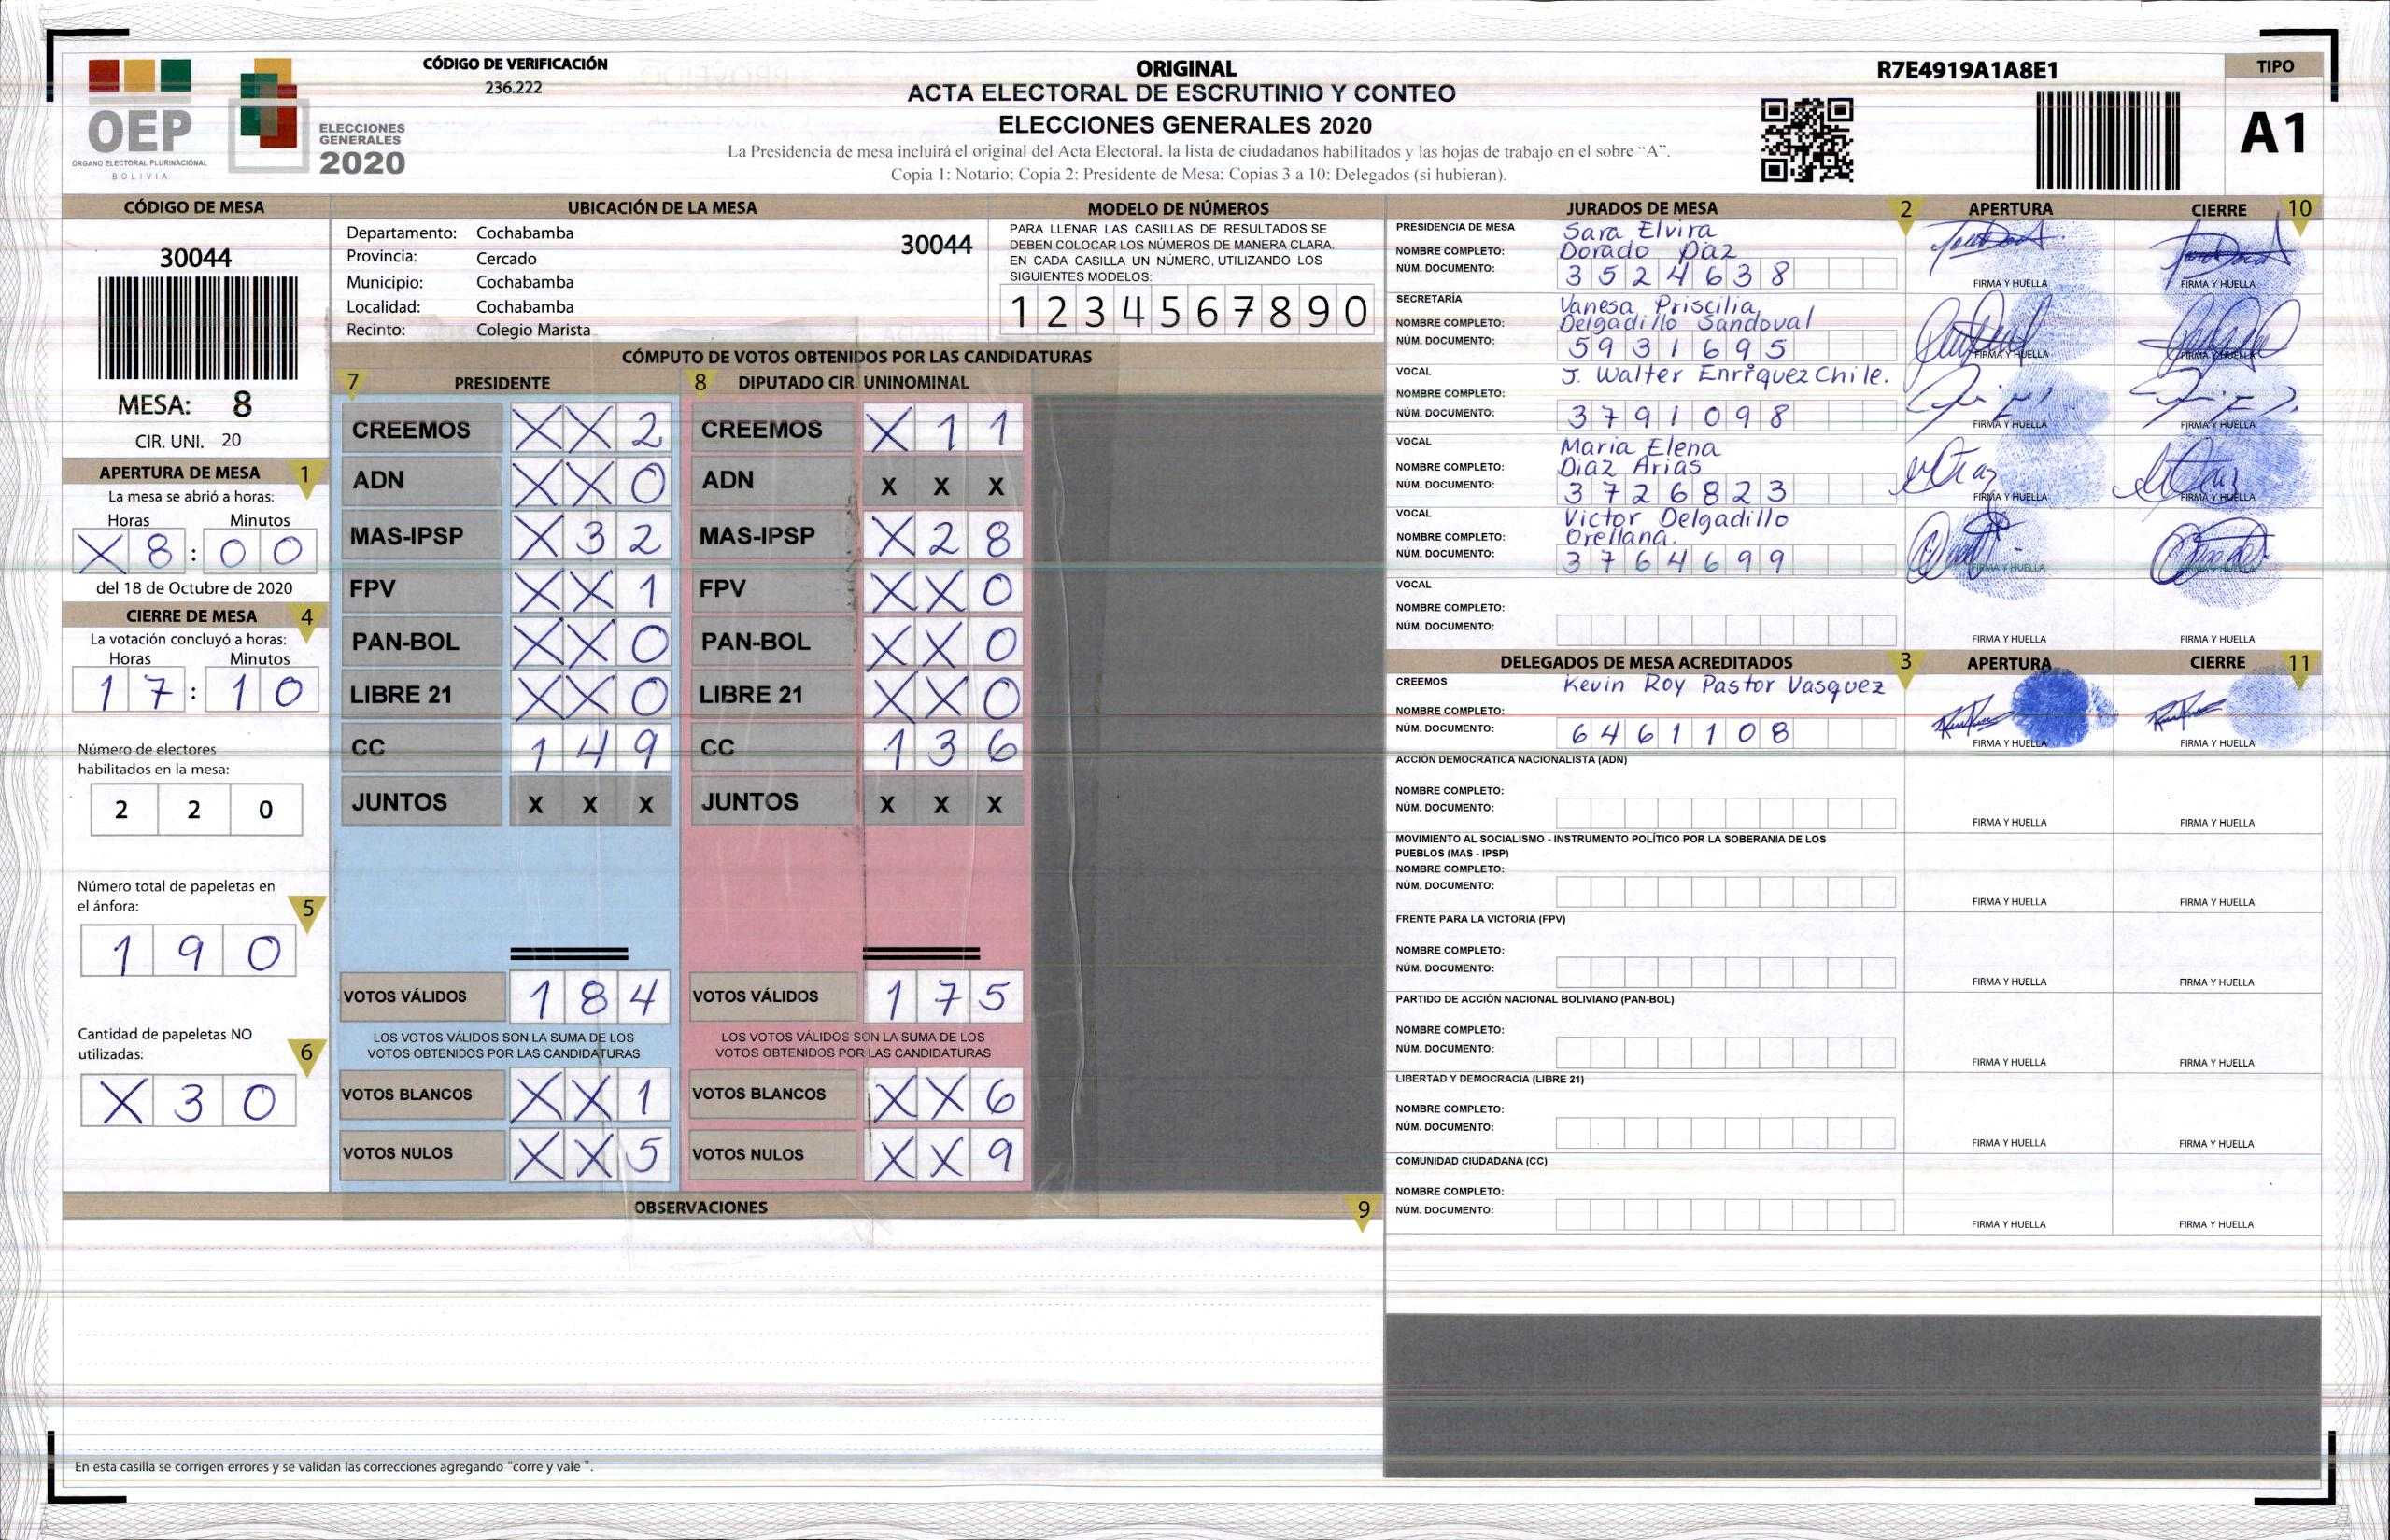 OEP
ÓRGANO ELECTORAL PLURINACIONAL
BOLIVIA
ELECCIONES
GENERALES
2020
CÓDIGO DE VERIFICACIÓN
236.222
ORIGINAL
ACTA ELECTORAL DE ESCRUTINIO Y CONTEO
ELECCIONES GENERALES 2020
La Presidencia de mesa incluirá el original del Acta Electoral, la lista de ciudadanos habilitados y las hojas de trabajo en el sobre “A”.
Copia 1: Notario; Copia 2: Presidente de Mesa; Copias 3 a 10: Delegados (si hubieran).
R7E4919A1A8E1
TIPO
A1
CÓDIGO DE MESA
30044
MESA: 8
CIR. UNI. 20
APERTURA DE MESA 1
La mesa se abrió a horas:
Horas Minutos
X 8 : 0 0
del 18 de Octubre de 2020
CIERRE DE MESA 4
La votación concluyó a horas:
Horas Minutos
1 7 : 1 0
Número de electores
habilitados en la mesa:
2 2 0
Número total de papeletas en
el ánfora: 5
1 9 0
Cantidad de papeletas NO
utilizadas: 6
X 3 0
UBICACIÓN DE LA MESA
Departamento: Cochabamba
30044
Provincia: Cercado
Municipio: Cochabamba
Localidad: Cochabamba
Recinto: Colegio Marista
MODELO DE NÚMEROS
PARA LLENAR LAS CASILLAS DE RESULTADOS SE
DEBEN COLOCAR LOS NÚMEROS DE MANERA CLARA.
EN CADA CASILLA UN NÚMERO, UTILIZANDO LOS
SIGUIENTES MODELOS:
1 2 3 4 5 6 7 8 9 0
CÓMPUTO DE VOTOS OBTENIDOS POR LAS CANDIDATURAS
7 PRESIDENTE
CREEMOS X X 2
ADN X X 0
MAS-IPSP X 3 2
FPV X X 1
PAN-BOL X X 0
LIBRE 21 X X 0
CC 1 4 9
JUNTOS X X X
VOTOS VÁLIDOS 1 8 4
LOS VOTOS VÁLIDOS SON LA SUMA DE LOS
VOTOS OBTENIDOS POR LAS CANDIDATURAS
VOTOS BLANCOS X X 1
VOTOS NULOS X X 5
8 DIPUTADO CIR. UNINOMINAL
CREEMOS X 1 1
ADN X X X
MAS-IPSP X 2 8
FPV X X 0
PAN-BOL X X 0
LIBRE 21 X X 0
CC 1 3 6
JUNTOS X X X
VOTOS VÁLIDOS 1 7 5
LOS VOTOS VÁLIDOS SON LA SUMA DE LOS
VOTOS OBTENIDOS POR LAS CANDIDATURAS
VOTOS BLANCOS X X 6
VOTOS NULOS X X 9
OBSERVACIONES 9
En esta casilla se corrigen errores y se validan las correcciones agregando “corre y vale ”.
JURADOS DE MESA 2 APERTURA CIERRE 10
PRESIDENCIA DE MESA Sara Elvira
NOMBRE COMPLETO: Dorado Diaz
NÚM. DOCUMENTO: 3 5 2 4 6 3 8
FIRMA Y HUELLA FIRMA Y HUELLA
SECRETARÍA Vanesa Priscilia
NOMBRE COMPLETO: Delgadillo Sandoval
NÚM. DOCUMENTO: 5 9 3 1 6 9 5
FIRMA Y HUELLA FIRMA Y HUELLA
VOCAL J. Walter Enriquez Chile.
NOMBRE COMPLETO:
NÚM. DOCUMENTO: 3 7 9 1 0 9 8
FIRMA Y HUELLA FIRMA Y HUELLA
VOCAL Maria Elena
NOMBRE COMPLETO: Diaz Arias
NÚM. DOCUMENTO: 3 7 2 6 8 2 3
FIRMA Y HUELLA FIRMA Y HUELLA
VOCAL Victor Delgadillo
NOMBRE COMPLETO: Orellana.
NÚM. DOCUMENTO: 3 7 6 4 6 9 9
FIRMA Y HUELLA FIRMA Y HUELLA
VOCAL
NOMBRE COMPLETO:
NÚM. DOCUMENTO:
FIRMA Y HUELLA FIRMA Y HUELLA
DELEGADOS DE MESA ACREDITADOS 3 APERTURA CIERRE 11
CREEMOS Kevin Roy Pastor Vasquez
NOMBRE COMPLETO:
NÚM. DOCUMENTO: 6 4 6 1 1 0 8
FIRMA Y HUELLA FIRMA Y HUELLA
ACCIÓN DEMOCRÁTICA NACIONALISTA (ADN)
NOMBRE COMPLETO:
NÚM. DOCUMENTO:
FIRMA Y HUELLA FIRMA Y HUELLA
MOVIMIENTO AL SOCIALISMO - INSTRUMENTO POLÍTICO POR LA SOBERANIA DE LOS
PUEBLOS (MAS - IPSP)
NOMBRE COMPLETO:
NÚM. DOCUMENTO:
FIRMA Y HUELLA FIRMA Y HUELLA
FRENTE PARA LA VICTORIA (FPV)
NOMBRE COMPLETO:
NÚM. DOCUMENTO:
FIRMA Y HUELLA FIRMA Y HUELLA
PARTIDO DE ACCIÓN NACIONAL BOLIVIANO (PAN-BOL)
NOMBRE COMPLETO:
NÚM. DOCUMENTO:
FIRMA Y HUELLA FIRMA Y HUELLA
LIBERTAD Y DEMOCRACIA (LIBRE 21)
NOMBRE COMPLETO:
NÚM. DOCUMENTO:
FIRMA Y HUELLA FIRMA Y HUELLA
COMUNIDAD CIUDADANA (CC)
NOMBRE COMPLETO:
NÚM. DOCUMENTO:
FIRMA Y HUELLA FIRMA Y HUELLA